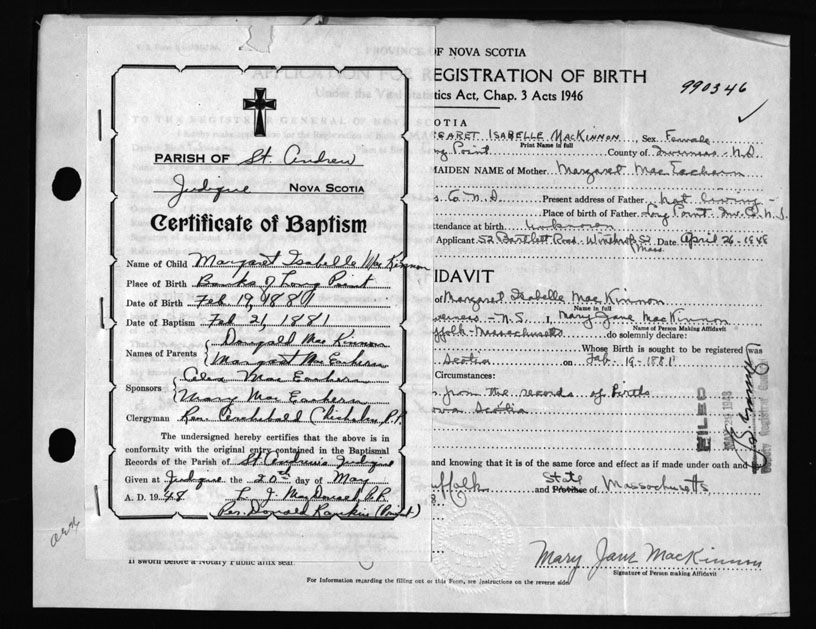 PARISH OF St. Andrew
Judique NOVA SCOTIA
Certificate of Baptism
Name of Child Margaret Isabelle MacKinnon
Place of Birth Banks of Long Point
Date of Birth Feb 19, 1881
Date of Baptism Feb 21, 1881
Names of Parents Dougald MacKinnon
Margaret MacEachern
Sponsors Alex MacEachern
Mary MacEachern
Clergyman Rev. Archibald Chisholm P.P.
The undersigned hereby certifies that the above is in
conformity with the original entry contained in the Baptismal
Records of the Parish of St. Andrews Judique
Given at Judique the 20th day of May
A. D. 1948 L. J. MacDonald P.P.
Per. Donald Rankin (Priest)
OF NOVA SCOTIA
REGISTRATION OF BIRTH
990346
tics Act, Chap. 3 Acts 1946
COTIA
GARET ISABELLE MACKINNON, Sex Female
Print Name in full
Point County of Inverness - N.S.
MAIDEN NAME of Mother Margaret Mac Eachern
Co N.S. Present address of Father Not living -
Place of birth of Father Long Point Inv. Co. N.S.
ttendance at birth unknown
Applicant 52 Bartlett Road - Winthrop 52 Date April 26 - 1948
Mass.
IDAVIT
of Margaret Isabelle MacKinnon
Name in full
verness - N.S. I, Mary Jane MacKinnon
Name of Person Making Affidavit
ffolk - Massachusetts do solemnly declare:
Whose Birth is sought to be registered was
Scotia on Feb. 19 - 1881
Circumstances:
from the records of births
ova Scotia
FILED
and knowing that it is of the same force and effect as if made under oath and
State
uffolk and Province of Massachusetts
Mary Jane MacKinnon
Signature of Person making Affidavit
If sworn before a Notary Public affix seal.
For Information regarding the filling out of this Form, see instructions on the reverse side